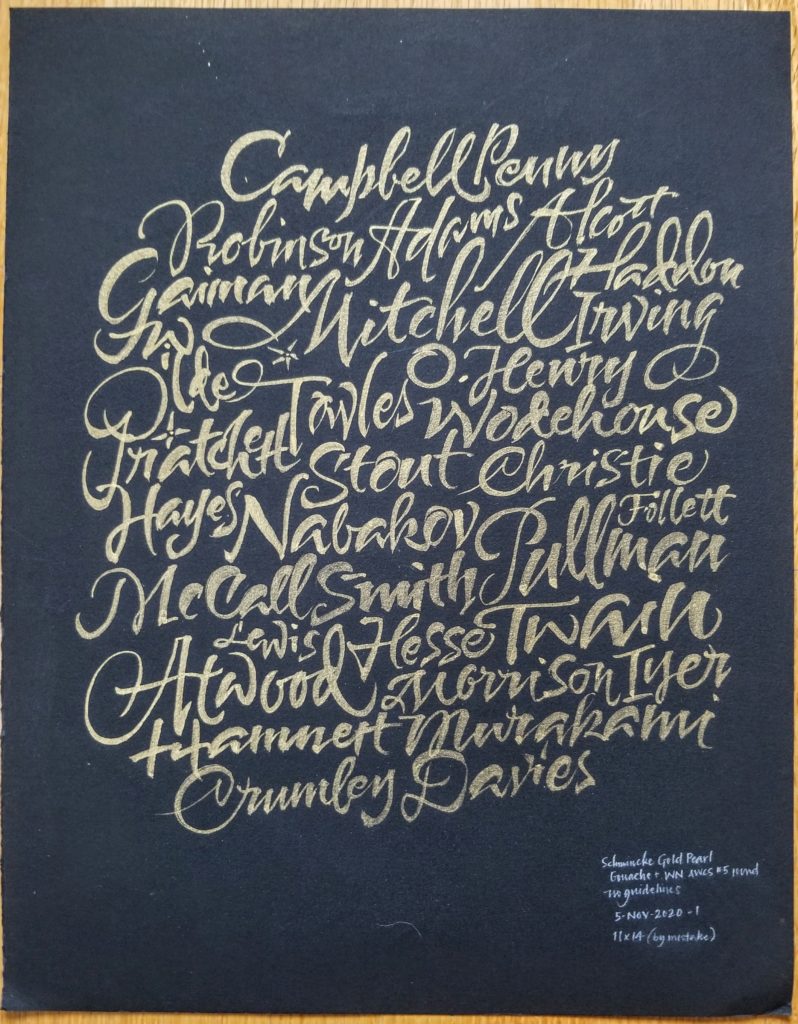 Campbell Penny
Robinson Adams Alcott
Gaiman Mitchell Haddon
Irving
Wilde Towles O. Henry
Pratchett Wodehouse
Stout Christie
Hayes Nabakov Follett
McCall Smith Pullman
Lewis Hesse Twain
Atwood Morrison Iyer
Hammett Murakami
Crumley Davies
Schmincke Gold Pearl
Gouache + WN #5 round
no guidelines
5-NOV-2020-1
11x14 (by mistake)